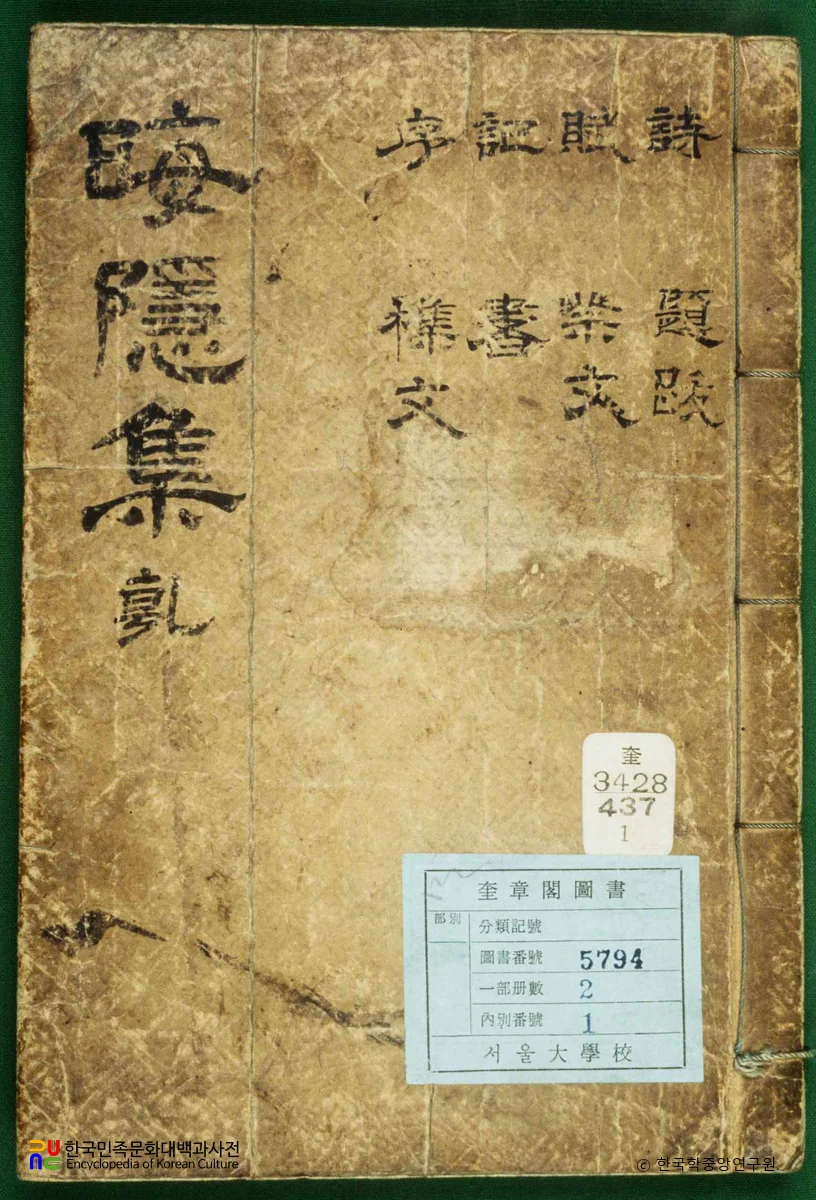 詩 題跋
賦 祭文
記 書
序 襍文
晦隱集 乾
奎
3428
437
1
奎章閣圖書
部別
分類記號
圖書番號 5794
一部册數 2
內別番號 1
서울大學校
한국민족문화대백과사전
Encyclopedia of Korean Culture
© 한국학중앙연구원